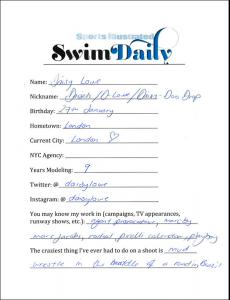 Sports Illustrated
Swim Daily
Name: Daisy Lowe
Nickname: D-Lowe
Birthday: 27th January
Hometown: London
Current City: London
NYC Agency:
Years Modeling: 9
Twitter: @ daisylowe
Instagram: @ daisylowe
You may know my work in (campaigns, TV appearances,
runway shows, etc.): agent provocateur, marc by
marc jacobs, pirelli calendar, playboy
The craziest thing I've ever had to do on a shoot is mud
wrestle in the middle of a road in